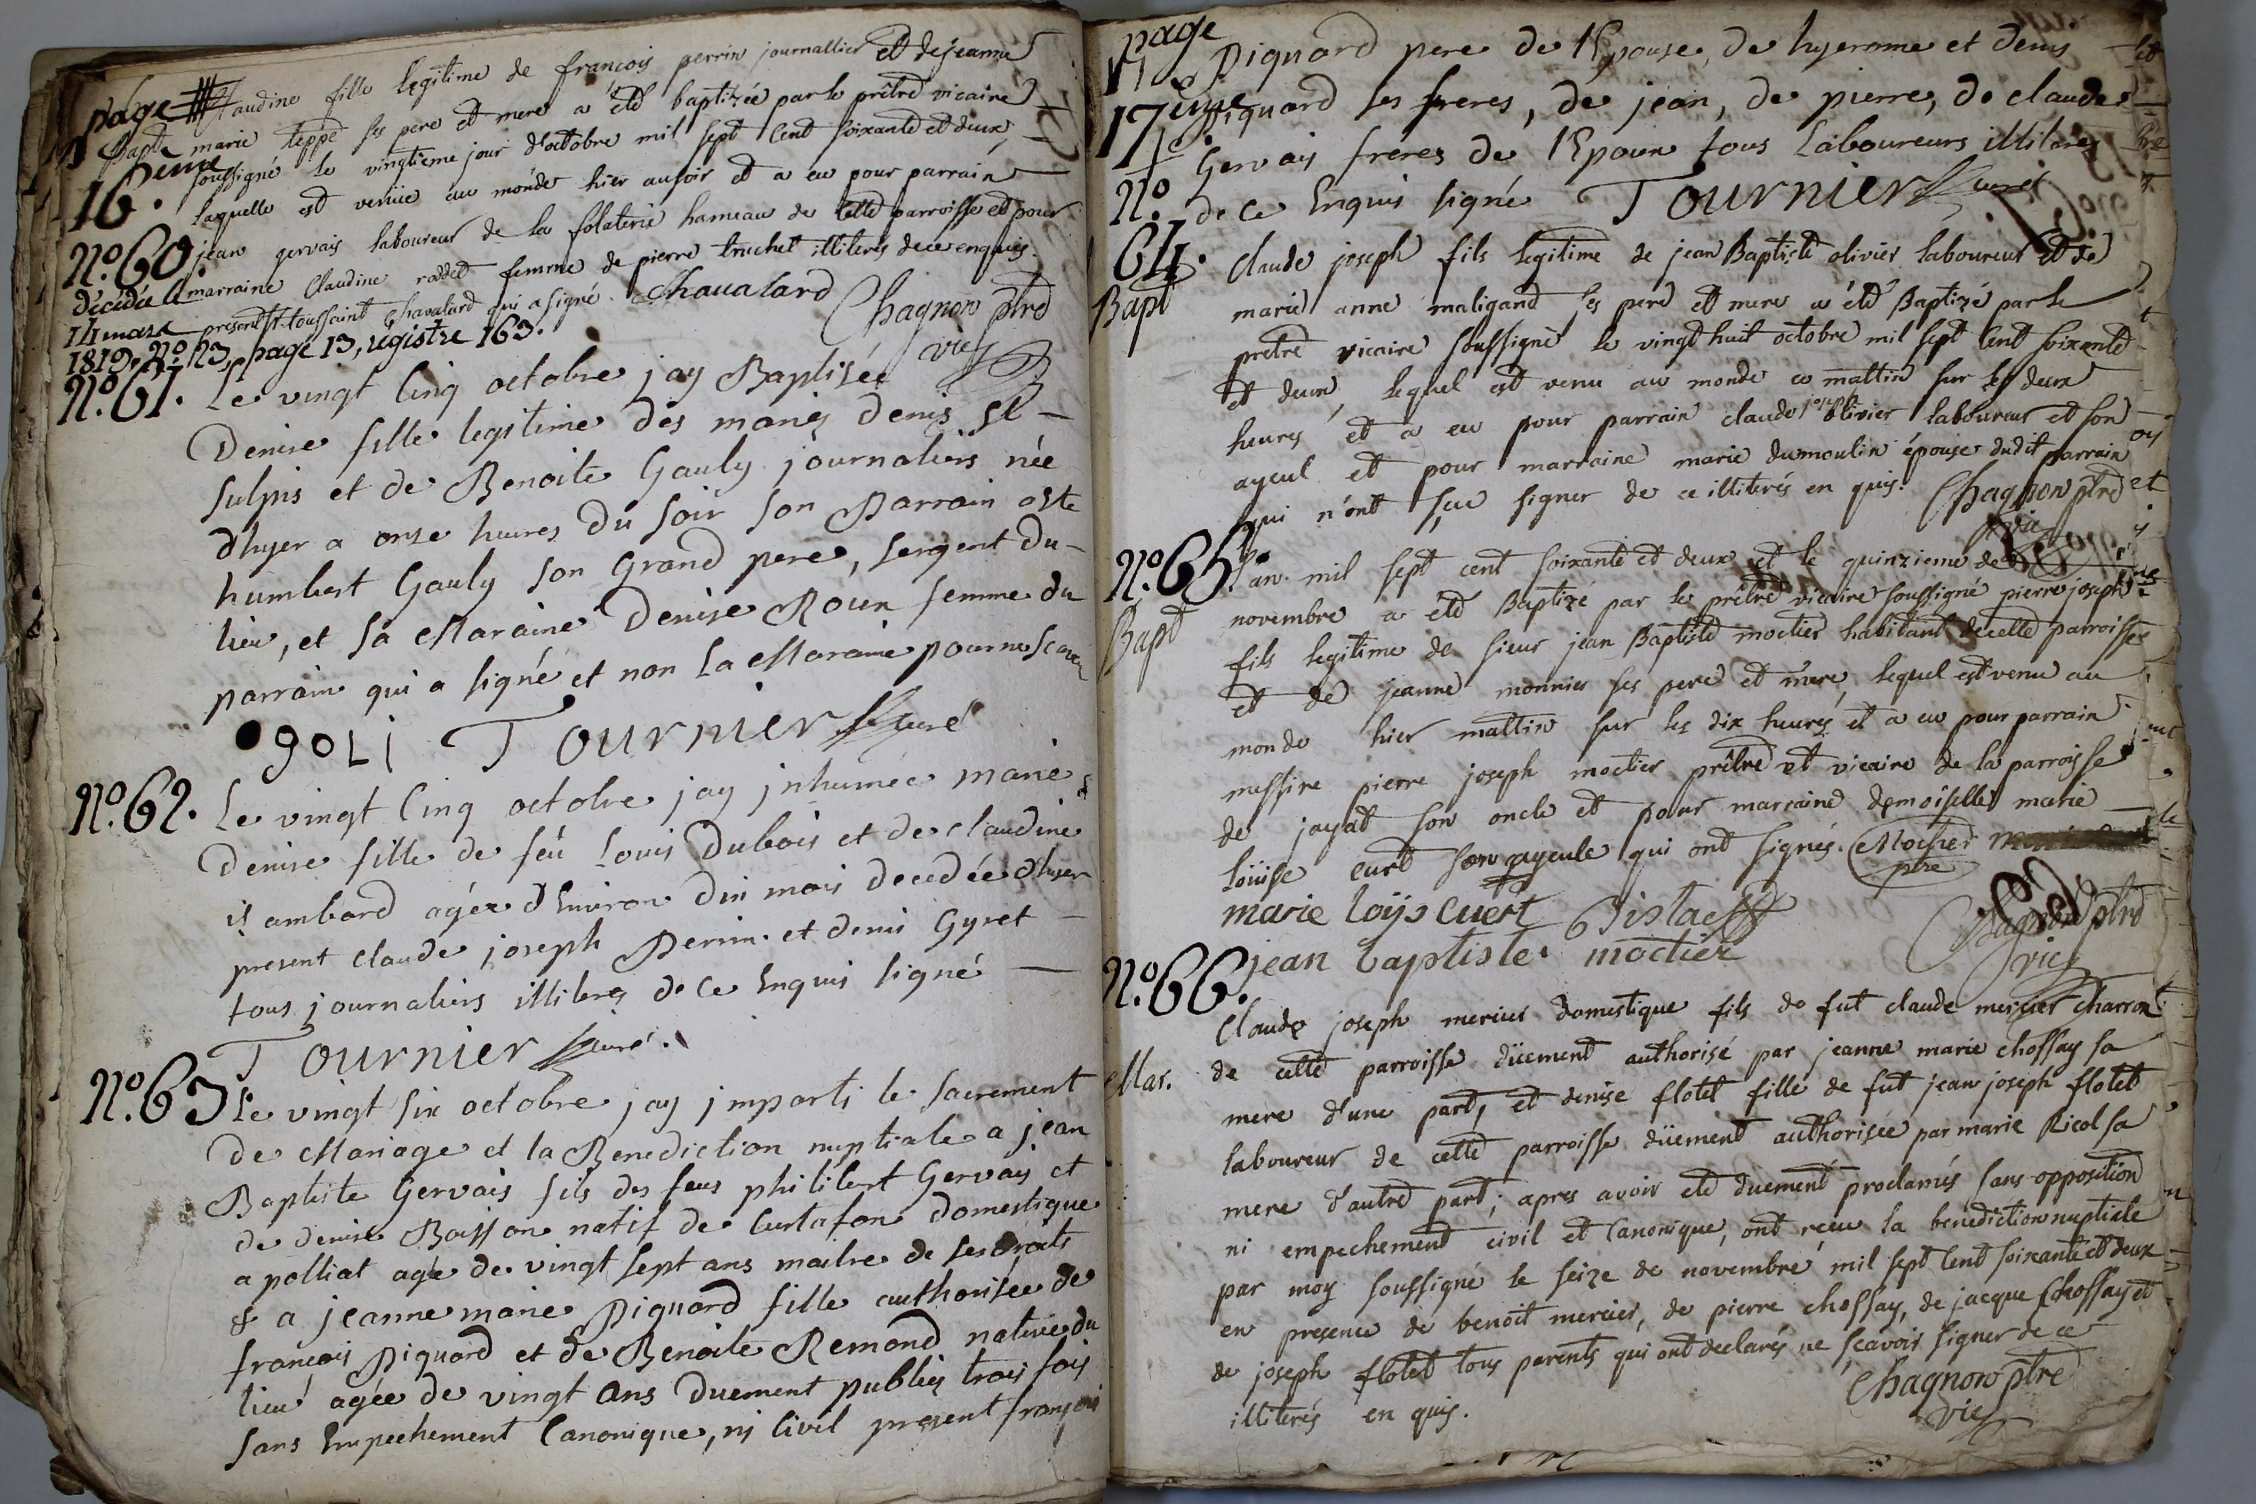 page
16.ème
Bapt
Claudine fille legitime de françois perrin journallier et de jeanne
marie teppe ses pere et mere a été baptizée par le prêtre vicaire
soussigné le vingtieme jour d'octobre mil sept cent soixante et deux,
laquelle est venüe au monde hier au soir et a eu pour parrain
N.º 60.
jean gervais laboureur de la folaterie hameau de cette parroisse et pour
décédée
marraine Claudine radet femme de pierre truchet illiterés de ce enquis.
14 mars
present St. toussaint Chavalard qui a signé. Chaualard Chagnon ptre
1819, N.º 23, page 13, régistre 163.
vic
N.º 61.
Le vingt cinq octobre jay Baptisée
Denise fille legitime des mariés denis St
sulpis et de Benoite Gauly journaliers née
d'hyer a onse heures du soir son Parrain aste
humbert Gauly son grand pere, sergent du
lieu, et sa Maraine Denise Roux femme du
parrain qui a signé et non la Maraine pour ne scavoir
goli Tournier curé
N.º 62.
Le vingt cinq octobre jay jnhumée marie
denise fille de feû Louis Dubois et de claudine
isambard agée d'Environ dix mois decedée d'hyer
present claude joseph Perrin et denis Gyret
tous journaliers illiteres de ce Enquis signé
Tournier curé.
N.º 63
Le vingt six octobre jay jmparti le sacrement
de Mariage et la Benediction nuptiale a jean
Baptiste Gervais fils des feus philibert Gervais et
de denise Boisson natif de Curtafon domestique
a polliat agé de vingt sept ans maitre de ses droits
& a jeanne marie Piquard fille authorisée de
françois Piquard et de Benoite Remond native du
lieu agée de vingt ans duement publiés trois fois
sans Empechement Canonique, ni Civil present françois
page
17ème
Piquard pere de l'Epouse, de hyerome et denis
piquard ses freres, de jean, de pierre, de claude
Gervais freres de l'Epoux tous Laboureurs illiteres
de ce Enquis signé Tournier curé
N.º
64.
Bapt
Claude joseph fils legitime de jean Baptiste olivier laboureur et de
marie anne maligand ses pere et mere a été Baptizé par le
prêtre vicaire soussigné le vingt huit octobre mil sept cent soixante
et deux, lequel est venu au monde ce mattin sur les deux
heures et a eu pour parrain claude joseph olivier laboureur et son
ayeul et pour marraine marie dumoulin épouse dudit parrain
qui n'ont scu signer de ce illiterés en quis. Chagnon ptre
vic
N.º 65.
Bapt
L'an mil sept cent soixante et deux et le quinzieme de
novembre a été Baptizé par le prêtre vicaire soussigné pierre joseph
fils legitime de sieur jean Baptiste moctier habitant de cette parroisse
et de jeanne monnier ses pere et mere, lequel est venu au
monde hier mattin sur les dix heures et a eu pour parrain
messire pierre joseph moctier prêtre et vicaire de la parroisse
de jayat son oncle et pour marraine demoiselle marie
loüise curt son ayeule qui ont signés. Moctier
ptre
marie loijs cuert
Chagnon ptre
vic
jean baptiste moctier
N.º 66.
Mar.
Claude joseph mercier domestique fils de fut claude mercier charron
de cette parroisse düement authorisé par jeanne marie chossay sa
mere d'une part, et denise flotet fille de fut jean joseph flotet
laboureur de cette parroisse düement authorisée par marie Ricol sa
mere d'autre part; apres avoir été duement proclamés sans opposition
ni empechement civil et Canonique, ont receu la benediction nuptiale
par moy soussigné le seize de novembre mil sept cent soixante et deux
en presence de benoit mercier, de pierre chossay, de jacque Chossay et
de joseph flotet tous parents qui ont declarés ne scavoir signer de ce
illiterés en quis. Chagnon ptre
vic